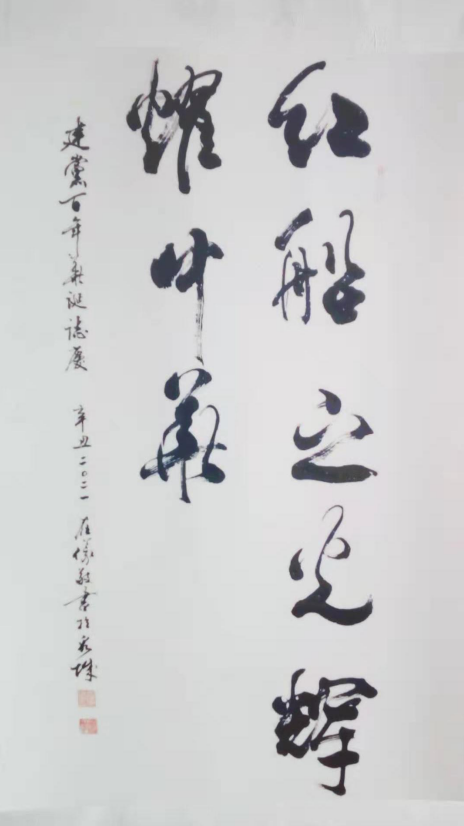 红船之光辉
耀中华
建党百年华诞志庆 辛丑二〇二一 儀敬书于